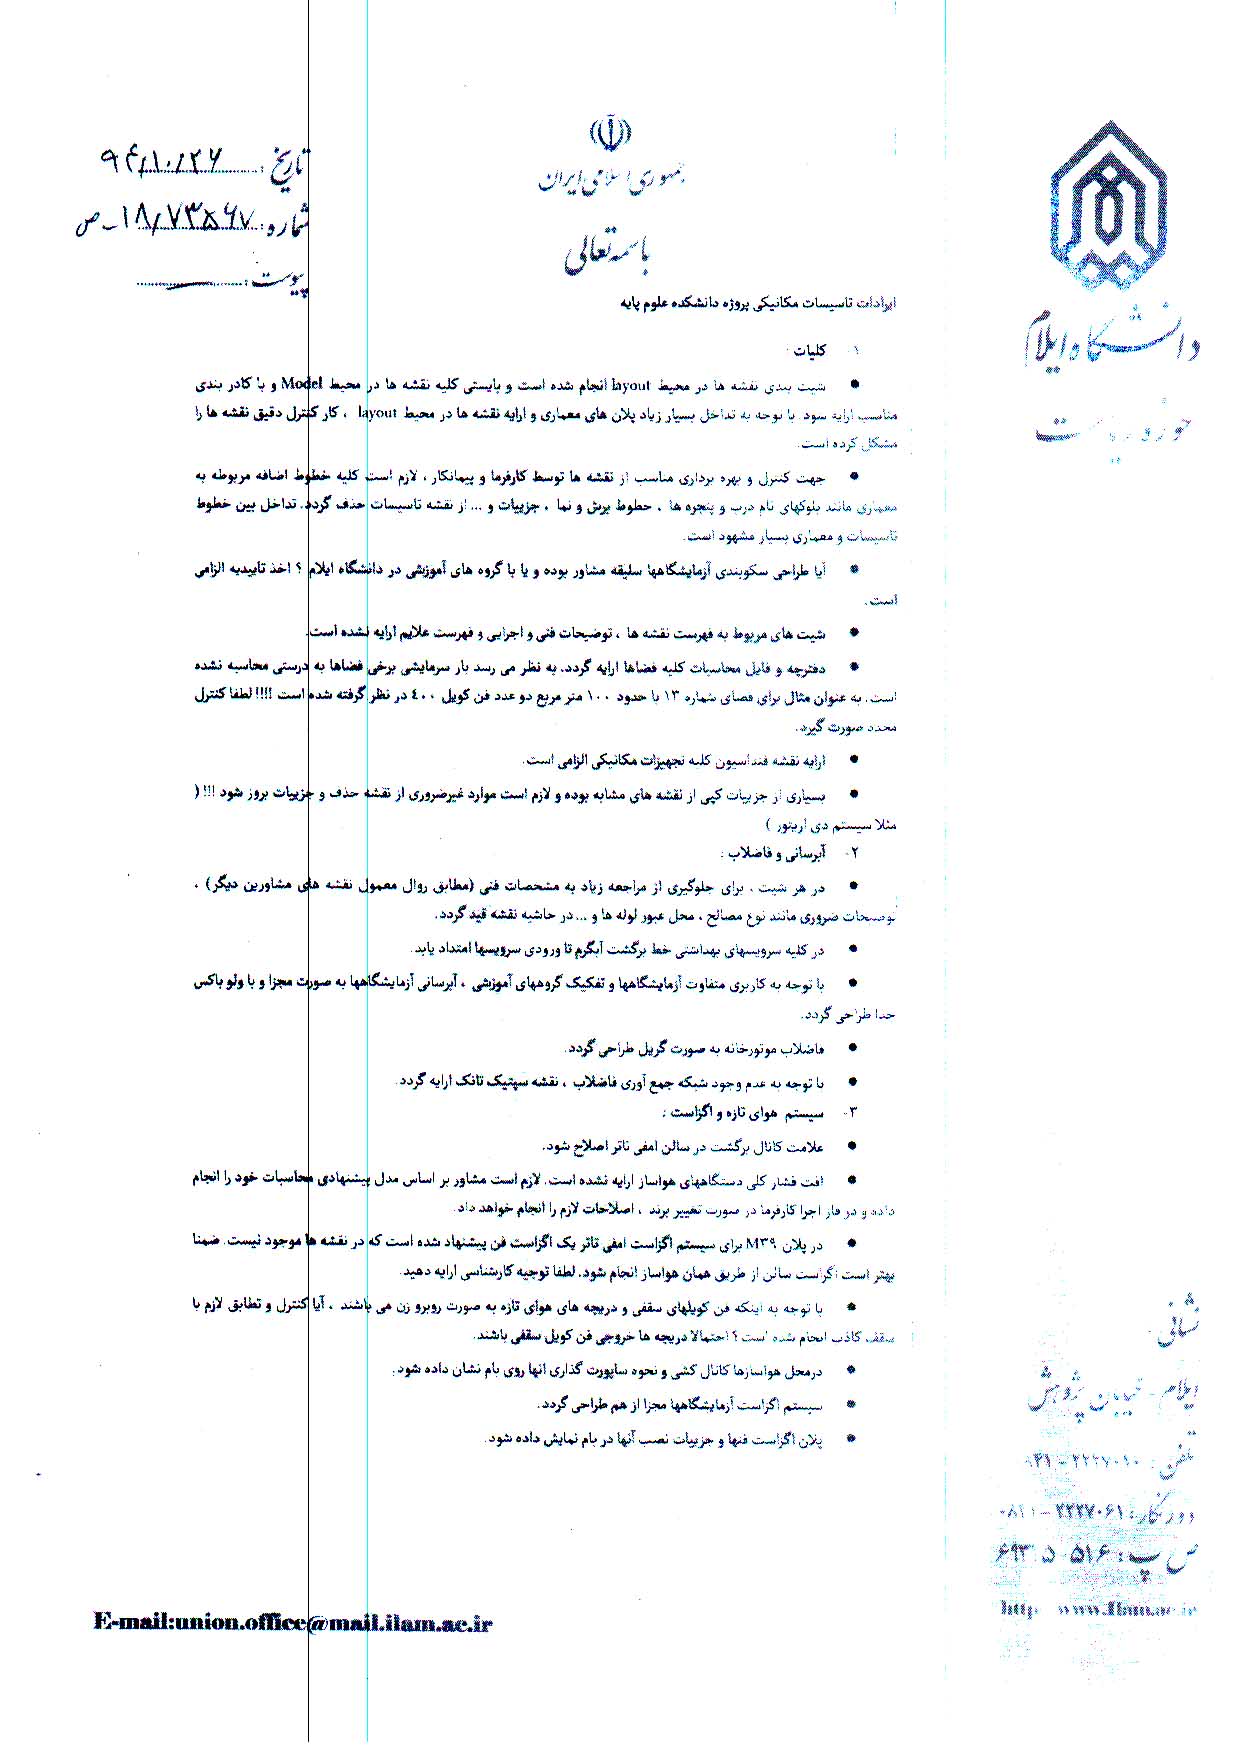 جمهوری اسلامی ایران
باسمه تعالی
تاریخ: ۹۴/۱۰/۲۶
شماره: ۱۸/۷۳۵۶۷-ص
پیوست:
دانشگاه ایلام
حوزه ریاست
ایرادات تاسیسات مکانیکی پروژه دانشکده علوم پایه
۱- کلیات :
● شیت بندی نقشه ها در محیط layout انجام شده است و بایستی کلیه نقشه ها در محیط Model و با کادر بندی
مناسب ارایه شود. با توجه به تداخل بسیار زیاد پلان های معماری و ارایه نقشه ها در محیط layout ، کار کنترل دقیق نقشه ها را
مشکل کرده است.
● جهت کنترل و بهره برداری مناسب از نقشه ها توسط کارفرما و پیمانکار ، لازم است کلیه خطوط اضافه مربوطه به
معماری مانند بلوکهای نام درب و پنجره ها ، خطوط برش و نما ، جزییات و ... از نقشه تاسیسات حذف گردد. تداخل بین خطوط
تاسیسات و معماری بسیار مشهود است.
● آیا طراحی سکوبندی آزمایشگاهها سلیقه مشاور بوده و یا با گروه های آموزشی در دانشگاه ایلام ؟ اخذ تاییدیه الزامی
است.
● شیت های مربوط به فهرست نقشه ها ، توضیحات فنی و اجرایی و فهرست علایم ارایه نشده است.
● دفترچه و فایل محاسبات کلیه فضاها ارایه گردد. به نظر می رسد بار سرمایشی برخی فضاها به درستی محاسبه نشده
است. به عنوان مثال برای فضای شماره ۱۳ با حدود ۱۰۰ متر مربع دو عدد فن کویل ۴۰۰ در نظر گرفته شده است !!!! لطفا کنترل
مجدد صورت گیرد.
● ارایه نقشه فنداسیون کلیه تجهیزات مکانیکی الزامی است.
● بسیاری از جزییات کپی از نقشه های مشابه بوده و لازم است موارد غیرضروری از نقشه حذف و جزییات بروز شود !!! (
مثلا سیستم دی اریتور )
۲- آبرسانی و فاضلاب :
● در هر شیت ، برای جلوگیری از مراجعه زیاد به مشخصات فنی (مطابق روال معمول نقشه های مشاورین دیگر) ،
توضیحات ضروری مانند نوع مصالح ، محل عبور لوله ها و ... در حاشیه نقشه قید گردد.
● در کلیه سرویسهای بهداشتی خط برگشت آبگرم تا ورودی سرویسها امتداد یابد.
● با توجه به کاربری متفاوت آزمایشگاهها و تفکیک گروههای آموزشی ، آبرسانی آزمایشگاهها به صورت مجزا و با ولو باکس
جدا طراحی گردد.
● فاضلاب موتورخانه به صورت گریل طراحی گردد.
● با توجه به عدم وجود شبکه جمع آوری فاضلاب ، نقشه سپتیک تانک ارایه گردد.
۳- سیستم هوای تازه و اگزاست :
● علامت کانال برگشت در سالن امفی تاتر اصلاح شود.
● افت فشار کلی دستگاههای هواساز ارایه نشده است. لازم است مشاور بر اساس مدل پیشنهادی محاسبات خود را انجام
داده و در فاز اجرا کارفرما در صورت تغییر برند ، اصلاحات لازم را انجام خواهد داد.
● در پلان M۳۹ برای سیستم اگزاست امفی تاتر یک اگزاست فن پیشنهاد شده است که در نقشه ها موجود نیست. ضمنا
بهتر است اگزاست سالن از طریق همان هواساز انجام شود. لطفا توجیه کارشناسی ارایه دهید.
● با توجه به اینکه فن کویلهای سقفی و دریچه های هوای تازه به صورت روبرو زن می باشند ، آیا کنترل و تطابق لازم با
سقف کاذب انجام شده است ؟ احتمالا دریچه ها خروجی فن کویل سقفی باشند.
● درمحل هواسازها کانال کشی و نحوه ساپورت گذاری انها روی بام نشان داده شود.
● سیستم اگزاست آزمایشگاهها مجزا از هم طراحی گردد.
● پلان اگزاست فنها و جزییات نصب آنها در بام نمایش داده شود.
نشانی:
ایلام - خیابان پژوهش
تلفن:
دورنگار: ۲۲۲۷۰۶۱-
ص پ: ۵۱۶
www.Ilam.ac.ir
E-mail:union.office@mail.ilam.ac.ir